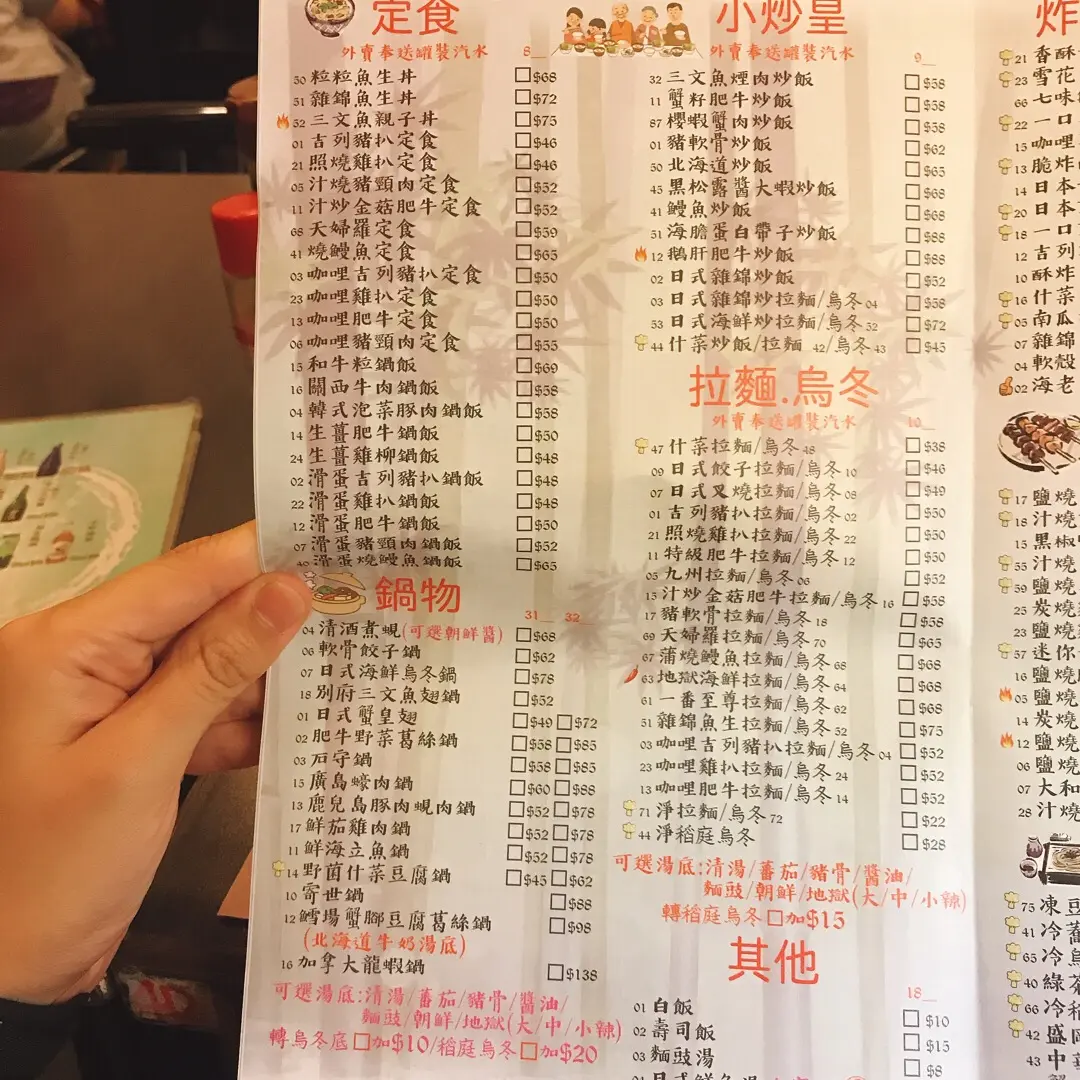 定食
外賣奉送罐裝汽水 8__
50 粒粒魚生丼 □$68
51 雜錦魚生丼 □$72
52 三文魚親子丼 □$75
01 吉列豬扒定食 □$46
21 照燒雞扒定食 □$46
05 汁燒豬頸肉定食 □$52
11 汁炒金菇肥牛定食 □$52
68 天婦羅定食 □$59
41 燒鰻魚定食 □$65
03 咖喱吉列豬扒定食 □$50
23 咖喱雞扒定食 □$50
13 咖喱肥牛定食 □$50
06 咖喱豬頸肉定食 □$55
15 和牛粒鍋飯 □$69
16 關西牛肉鍋飯 □$58
04 韓式泡菜豚肉鍋飯 □$58
14 生薑肥牛鍋飯 □$50
24 生薑雞柳鍋飯 □$48
02 滑蛋吉列豬扒鍋飯 □$48
22 滑蛋雞扒鍋飯 □$48
12 滑蛋肥牛鍋飯 □$50
07 滑蛋豬頸肉鍋飯 □$52
40 滑蛋燒鰻魚鍋飯 □$65
鍋物
31__ 32__
04 清酒煮蜆(可選朝鮮醬) □$68
06 軟骨餃子鍋 □$62
07 日式海鮮烏冬鍋 □$78
18 別府三文魚翅鍋 □$52
01 日式蟹皇翅 □$49 □$72
02 肥牛野菜葛絲鍋 □$58 □$85
03 石守鍋 □$58 □$85
15 廣島蠔肉鍋 □$60 □$88
13 鹿兒島豚肉蜆肉鍋 □$52 □$78
17 鮮茄雞肉鍋 □$52 □$78
11 鮮海立魚鍋 □$52 □$78
14 野菌什菜豆腐鍋 □$45 □$62
10 寄世鍋 □$88
12 鱈場蟹腳豆腐葛絲鍋 □$98
(北海道牛奶湯底)
16 加拿大龍蝦鍋 □$138
可選湯底:清湯/蕃茄/豬骨/醬油/
麵豉/朝鮮/地獄(大/中/小辣)
轉烏冬底□加$10/稻庭烏冬□加$20
小炒皇
外賣奉送罐裝汽水 9__
32 三文魚煙肉炒飯 □$58
11 蟹籽肥牛炒飯 □$58
87 櫻蝦蟹肉炒飯 □$58
01 豬軟骨炒飯 □$62
50 北海道炒飯 □$65
45 黑松露醬大蝦炒飯 □$68
41 鰻魚炒飯 □$68
51 海膽蛋白帶子炒飯 □$88
12 鵝肝肥牛炒飯 □$88
02 日式雜錦炒飯 □$52
03 日式雜錦炒拉麵/烏冬 04 □$58
53 日式海鮮炒拉麵/烏冬 52 □$72
44 什菜炒飯/拉麵 42/烏冬 43 □$45
拉麵.烏冬
外賣奉送罐裝汽水 10__
47 什菜拉麵/烏冬 48 □$38
09 日式餃子拉麵/烏冬 10 □$46
07 日式叉燒拉麵/烏冬 08 □$49
01 吉列豬扒拉麵/烏冬 02 □$50
21 照燒雞扒拉麵/烏冬 22 □$50
11 特級肥牛拉麵/烏冬 12 □$50
05 九州拉麵/烏冬 06 □$52
15 汁炒金菇肥牛拉麵/烏冬 16 □$58
17 豬軟骨拉麵/烏冬 18 □$58
69 天婦羅拉麵/烏冬 70 □$65
67 蒲燒鰻魚拉麵/烏冬 68 □$68
63 地獄海鮮拉麵/烏冬 64 □$68
61 一番至尊拉麵/烏冬 62 □$68
51 雜錦魚生拉麵/烏冬 52 □$75
03 咖喱吉列豬扒拉麵/烏冬 04 □$52
23 咖喱雞扒拉麵/烏冬 24 □$52
13 咖喱肥牛拉麵/烏冬 14 □$52
71 淨拉麵/烏冬 72 □$22
44 淨稻庭烏冬 □$28
可選湯底:清湯/蕃茄/豬骨/醬油/
麵豉/朝鮮/地獄(大/中/小辣)
轉稻庭烏冬□加$15
其他
18__
01 白飯 □$10
02 壽司飯 □$15
03 麵豉湯 □$8
炸
21 香酥
23 雪花
66 七味
22 一口
15 咖喱
13 脆炸
14 日本
20 日本
18 一口
12 吉列
10 酥炸
16 什菜
05 南瓜
07 雜錦
04 軟殼
02 海老
17 鹽燒
18 汁燒
15 黑椒
55 汁燒
59 鹽燒
25 炭燒
23 鹽燒
57 迷你
16 鹽燒
05 鹽燒
14 炭燒
12 鹽燒
06 鹽燒
07 大和
28 汁燒
75 凍豆
41 冷蕎
65 冷烏
40 綠茶
66 冷稻
42 盛岡
43 中華